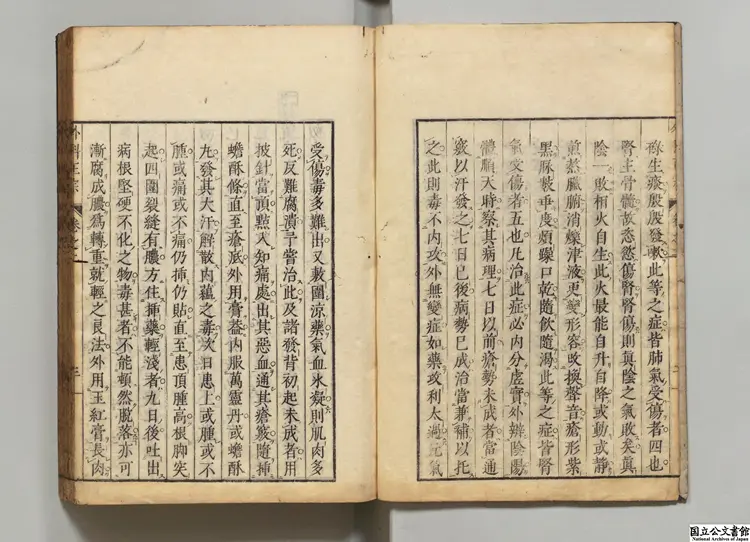 生痰殷殷發嗽此等之症皆肺氣受傷者四也
腎主骨髓故恣慾傷腎腎傷則眞陰之氣敗矣眞
陰一敗相火自生此火最能自升自降或動或靜
煎熬臟腑消爍津液更變形容改換聲音瘡形紫
黑脉數乖度煩躁口乾隨飲隨渴此等之症皆腎
氣受傷者五也凡治此症必內分虛實外辨陰陽
體順天時察其病理七日以前瘡勢未成者當通
竅以汗發之七日已後病勢已成治當兼補以托
之此則毒不內攻外無變症如藥攻利太過元氣
受傷毒多難出又敷圍涼藥氣血氷凝則肌肉多
死反難腐潰予嘗治此及諸發背初起未成者用
披針當頂點入知痛處出其惡血通其瘡竅隨插
蟾酥條直至瘡底外用膏蓋內服萬靈丹或蟾酥
丸發其大汗解散內蘊之毒次日患上或腫或不
腫或痛或不痛仍插仍貼直至患頂腫高根脚突
起四圍裂縫有膿方住插藥輕淺者九日後吐出
病根堅硬不化之物毒甚者不能頓然脫落亦可
漸腐成膿爲轉重就輕之良法外用玉紅膏長肉
外科正宗 卷之一 三
国立公文書館
National Archives of Japan